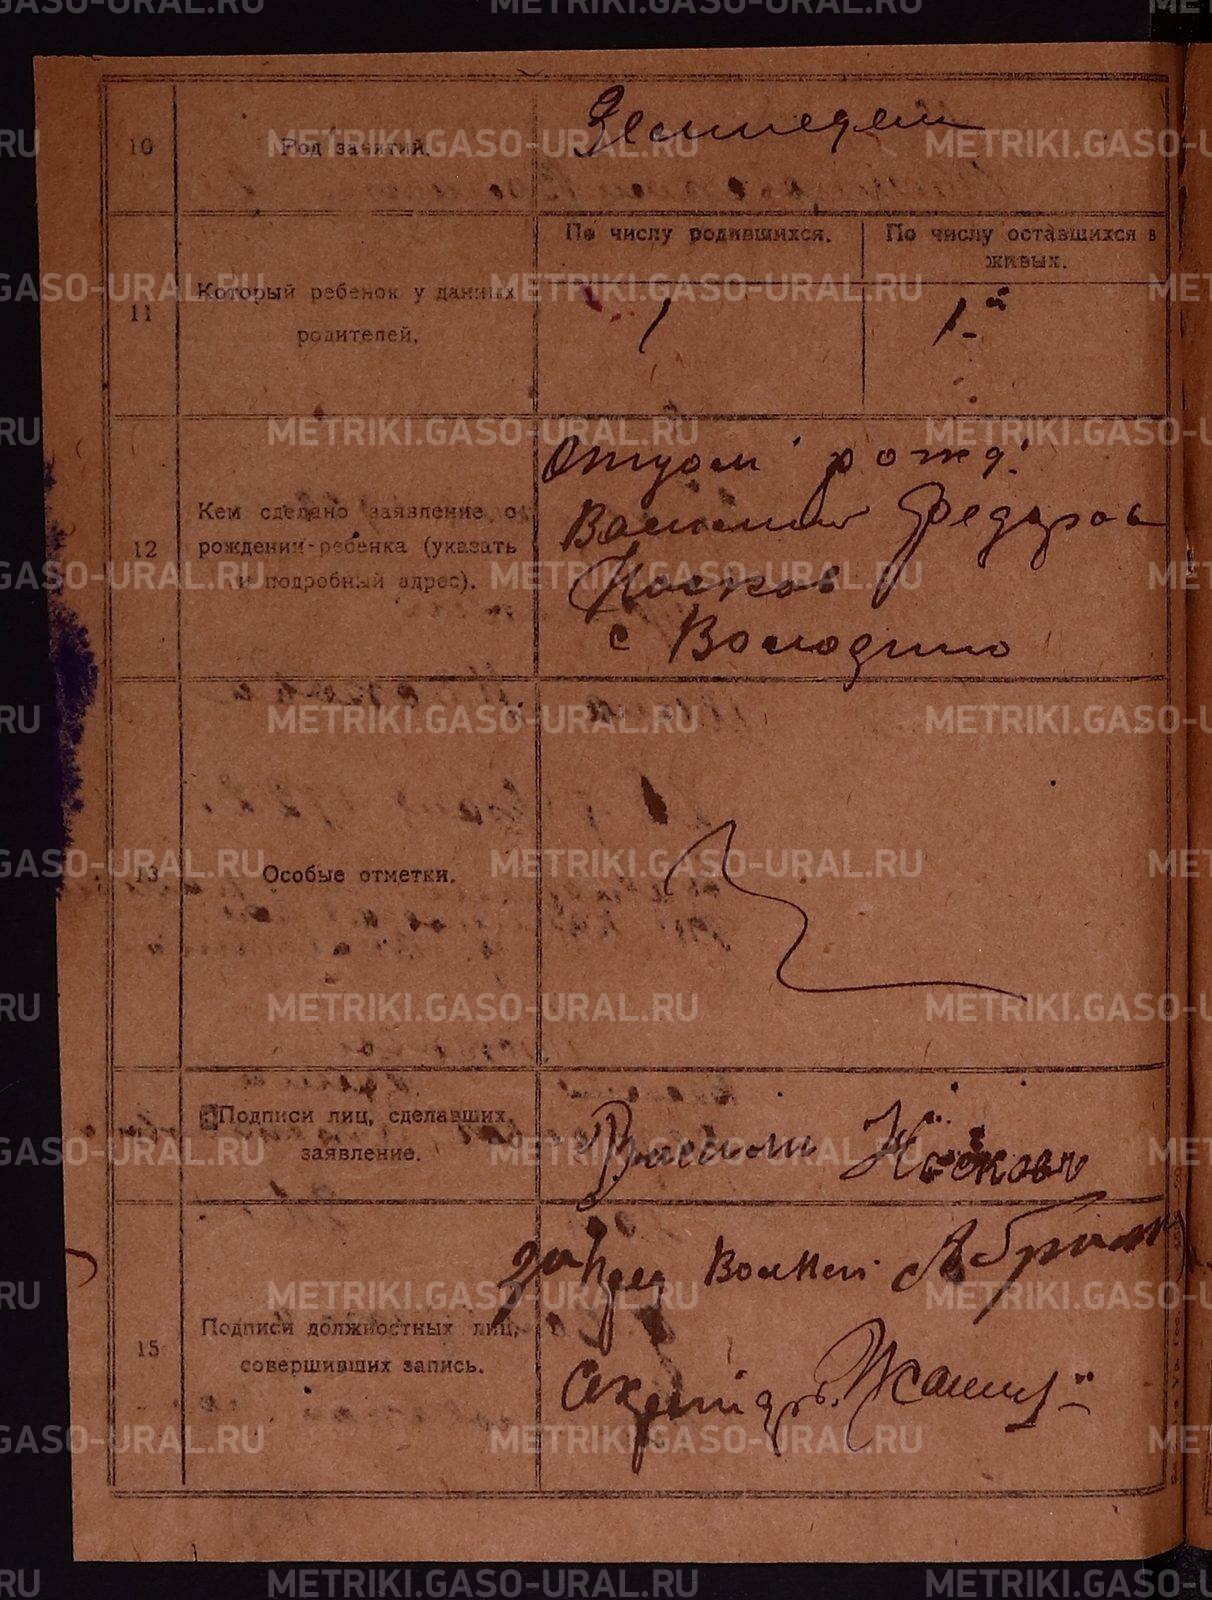 10
Род занятий.
Землед
11
Который ребенок у данных
родителей.
По числу родившихся.
По числу оставшихся в
живых.
1
1-й
12
Кем сделано заявление о
рождении ребенка (указать
и подробный адрес).
Отцом рожд.
Василий Федоров
Носков
с Володино
13
Особые отметки.
Подписи лиц, сделавших
заявление.
Василий Носковъ
15
Подписи должностных лиц,
совершивших запись.
За пред
METRIKI.GASO-URAL.RU